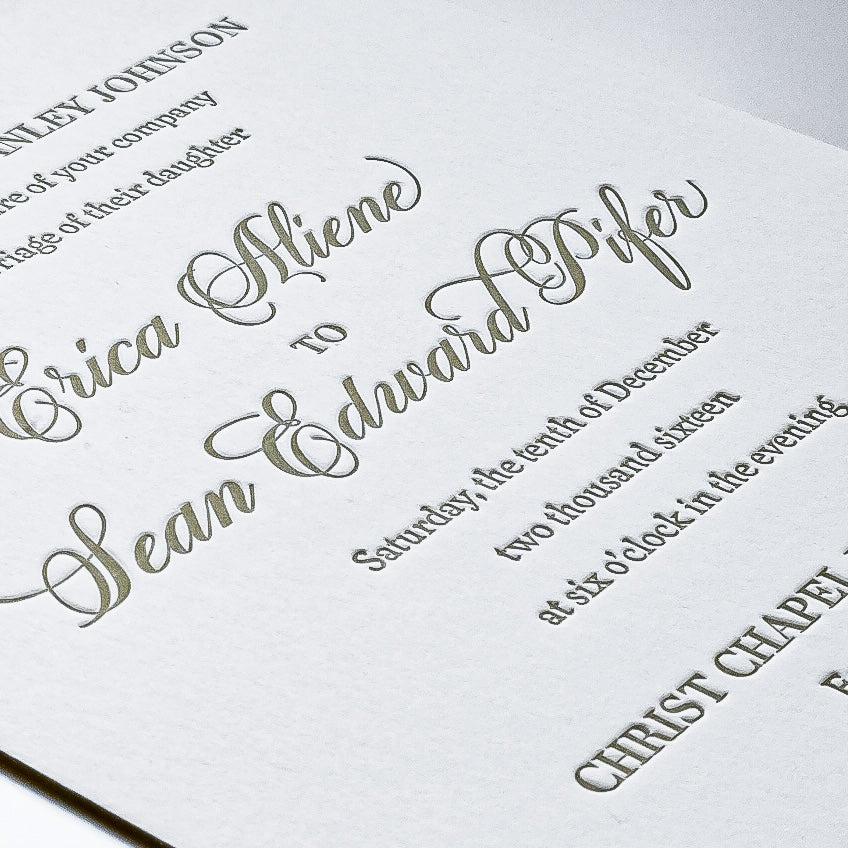 JOHNSON
of your company
of their daughter
Erica Aliene
TO
Sean Edward Pifer
Saturday, the tenth of December
two thousand sixteen
at six o'clock in the evening
CHRIST CHAPEL